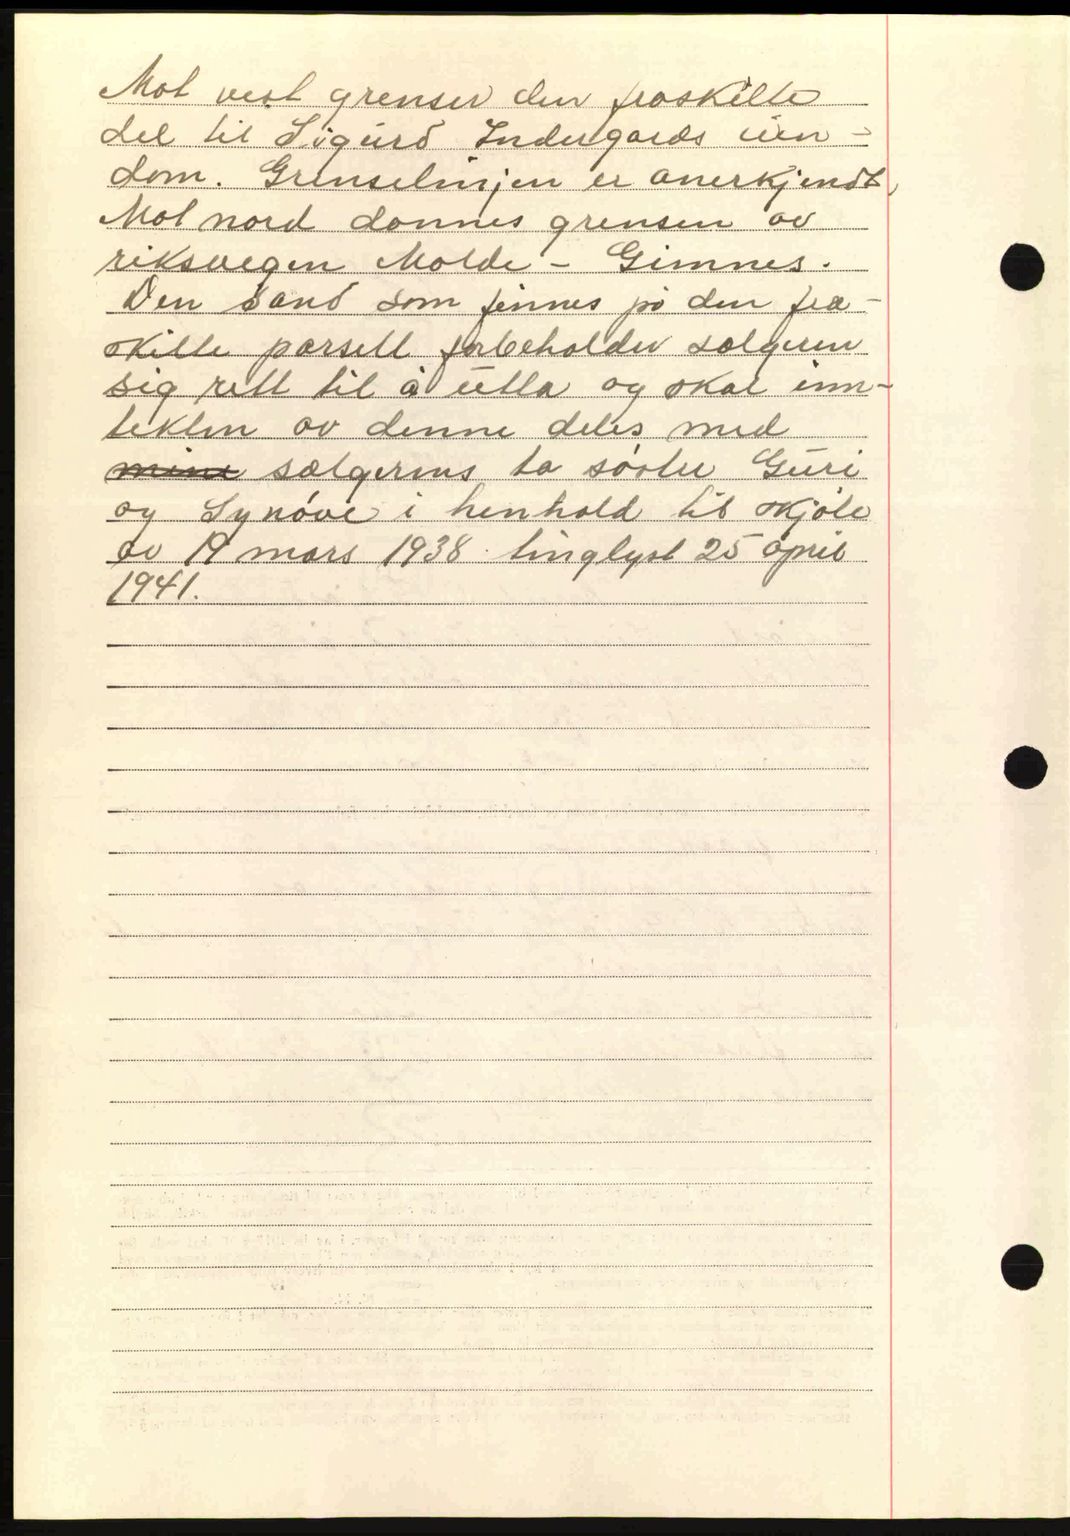 Mot vest grenser den fraskilte
del til Sigurd Indergaards eien-
dom. Grenselinjen er anerkjendt,
Mot nord dannes grensen av
riksvegen Molde - Gimnes.
Den sand som finnes på den fra-
skilte parsell forbeholder sælgeren
sig rett til å utta og skal inn-
tekten av denne deles med
mine sælgerens to søstre Guri
og Synøve i henhold til skjøte
av 19 mars 1938 tinglyst 25 april
1941.